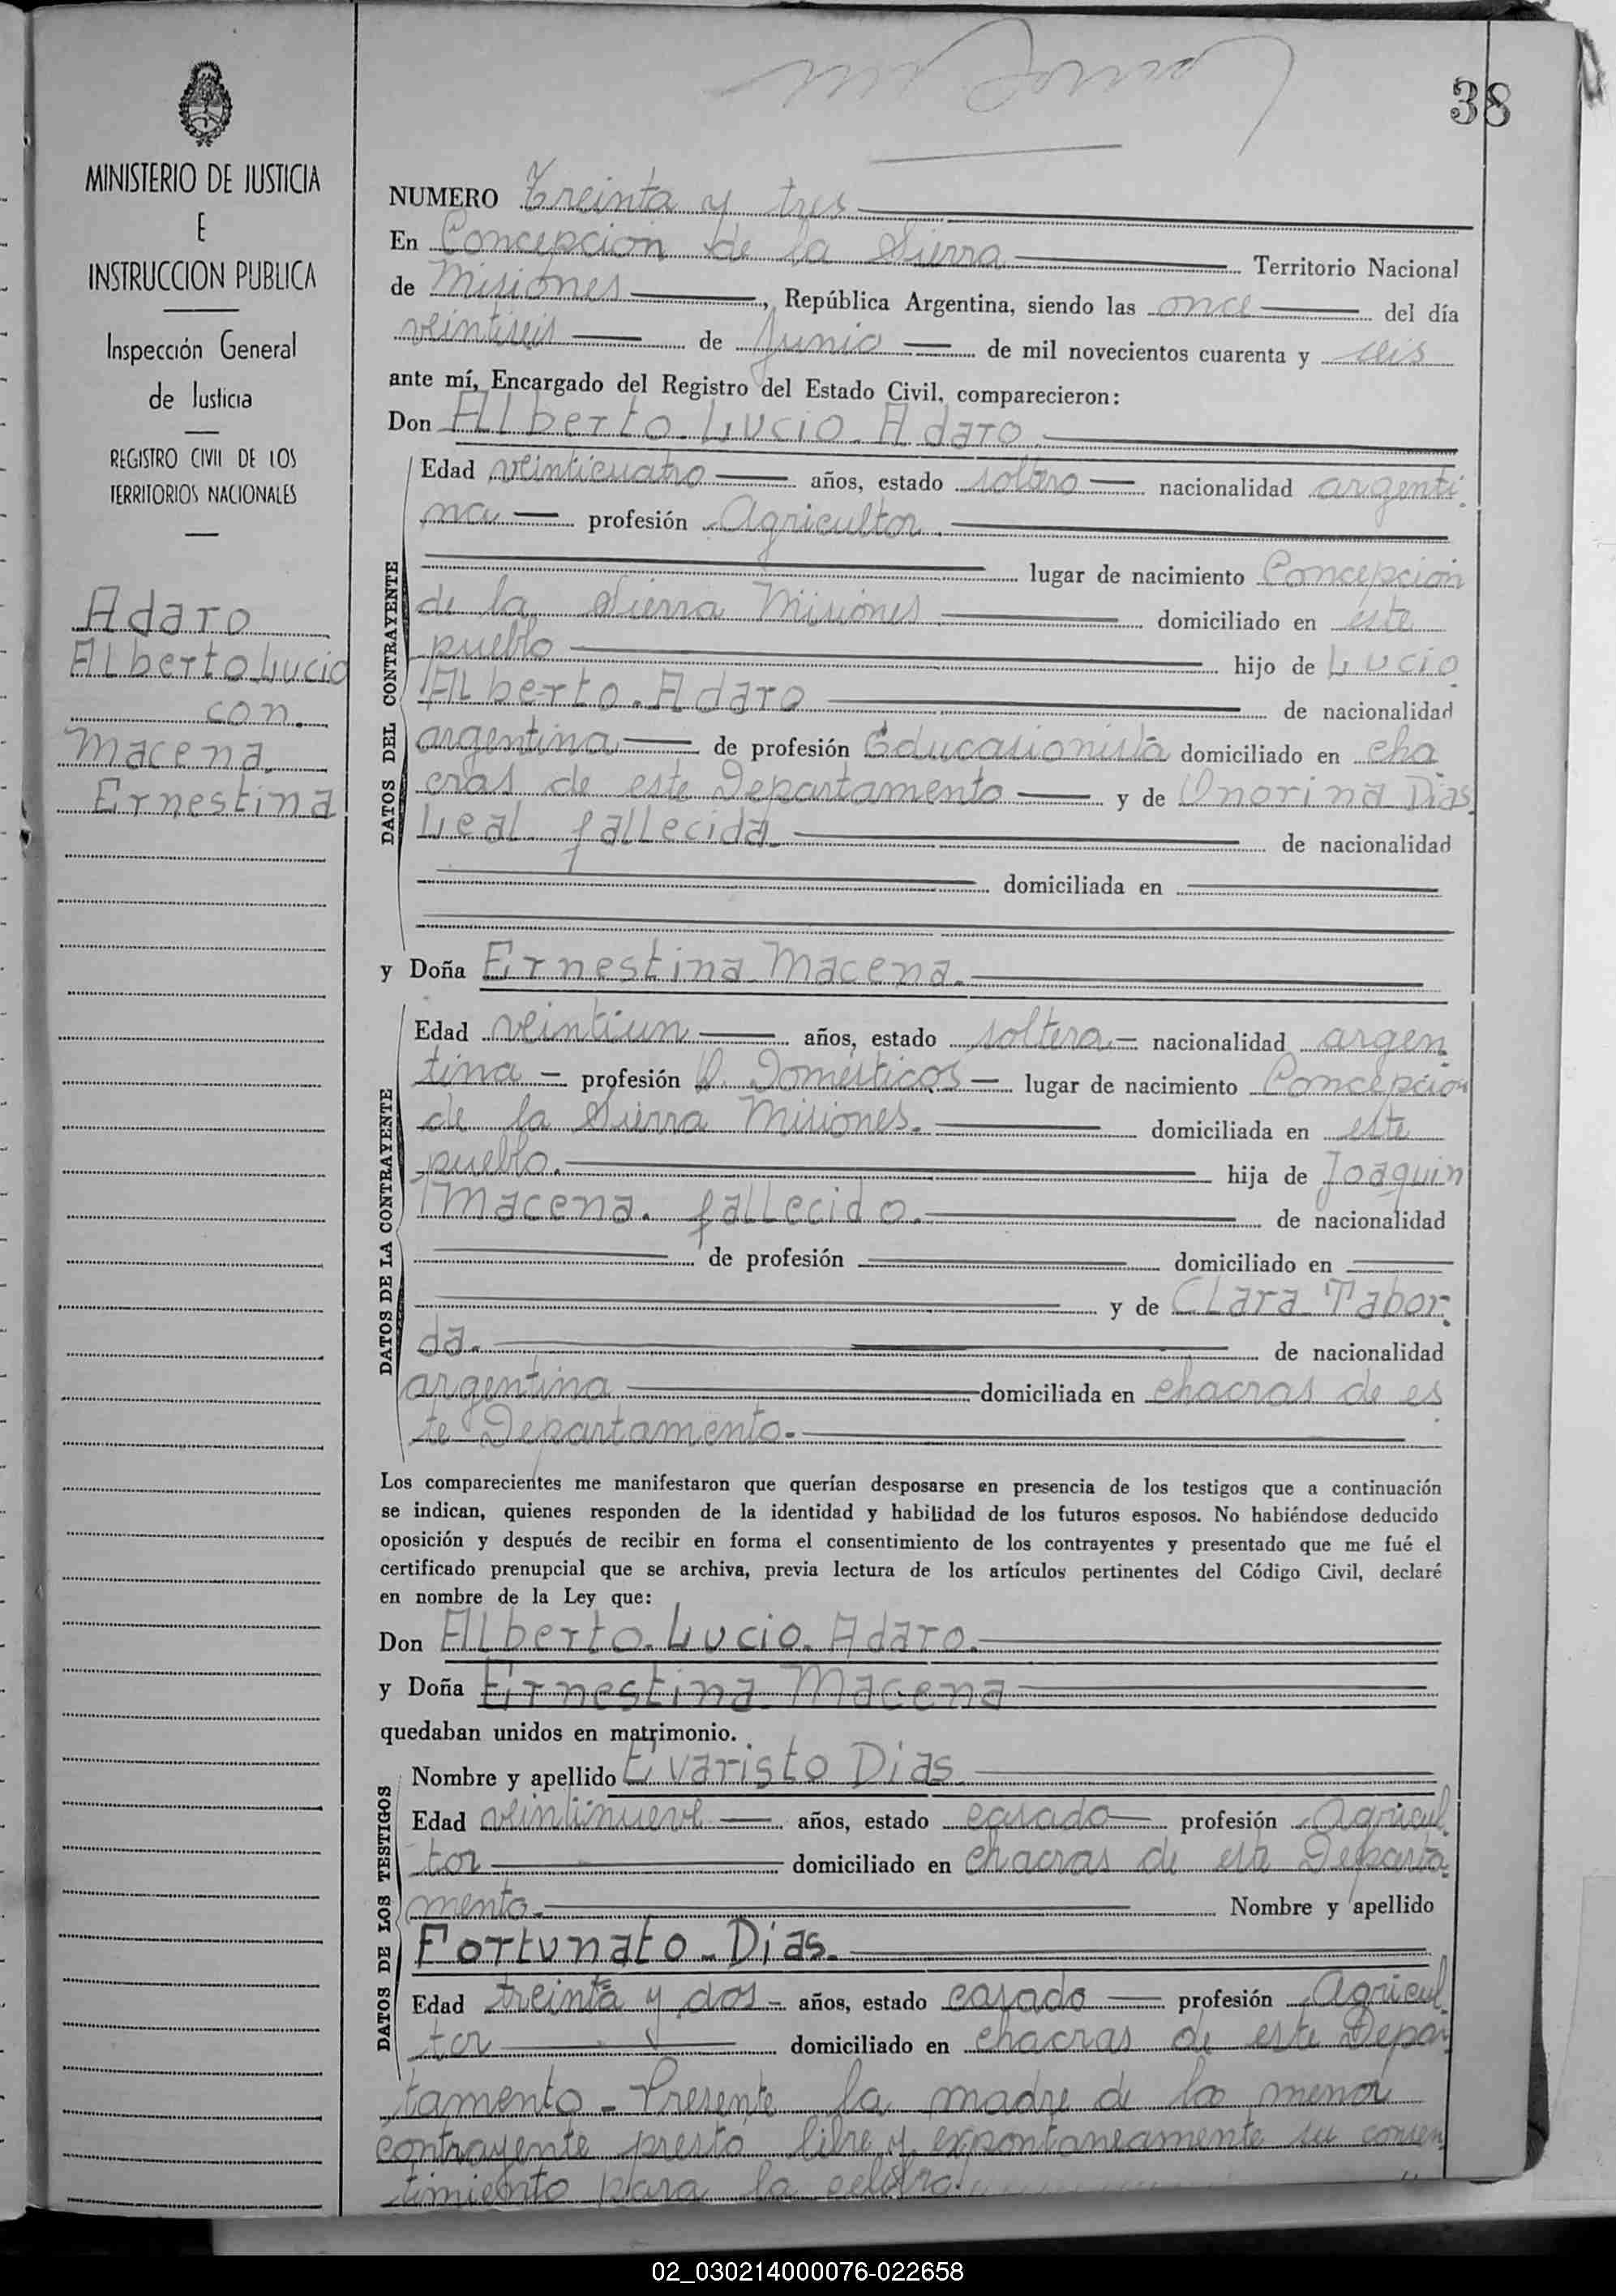 38
MINISTERIO DE JUSTICIA
E
INSTRUCCION PUBLICA
Inspección General
de Justicia
REGISTRO CIVIL DE LOS
TERRITORIOS NACIONALES
Adaro
Alberto Lucio
con.
Macena.
Ernestina
NUMERO Treinta y tres
En Concepcion de la Sierra Territorio Nacional
de Misiones, República Argentina, siendo las once del día
veintiseis de Junio de mil novecientos cuarenta y seis
ante mí, Encargado del Registro del Estado Civil, comparecieron:
Don Alberto. Lucio. Adaro
DATOS DEL CONTRAYENTE
Edad veinticuatro años, estado soltero nacionalidad argenti
na profesión Agricultor.
lugar de nacimiento Concepcion
de la Sierra Misiones domiciliado en este
pueblo hijo de Lucio
Alberto. Adaro de nacionalidad
argentina de profesión Educasionista domiciliado en cha
cras de este Departamento y de Onorina Dias
Leal. fallecida. de nacionalidad
domiciliada en
y Doña Ernestina Macena.
DATOS DE LA CONTRAYENTE
Edad veintiun años, estado soltera nacionalidad argen
tina profesión Q. Domésticos lugar de nacimiento Concepcion
de la Sierra Misiones. domiciliada en este
pueblo. hija de Joaquin
Macena. fallecido. de nacionalidad
de profesión domiciliado en
y de Clara Tabor
da. de nacionalidad
argentina domiciliada en chacras de es
te Departamento.
Los comparecientes me manifestaron que querían desposarse en presencia de los testigos que a continuación
se indican, quienes responden de la identidad y habilidad de los futuros esposos. No habiéndose deducido
oposición y después de recibir en forma el consentimiento de los contrayentes y presentado que me fué el
certificado prenupcial que se archiva, previa lectura de los artículos pertinentes del Código Civil, declaré
en nombre de la Ley que:
Don Alberto. Lucio. Adaro.
y Doña Ernestina Macena
quedaban unidos en matrimonio.
DATOS DE LOS TESTIGOS
Nombre y apellido Evaristo Dias
Edad veintinueve años, estado casado profesión Agricul
tor domiciliado en chacras de este Departa
mento. Nombre y apellido
Fortunato Dias.
Edad treinta y dos años, estado casado profesión Agricul
tor domiciliado en chacras de este Depar
tamento - Presente la madre de la menor
contrayente presto libre y expontaneamente su consen
timiento para la
02_030214000076-022658